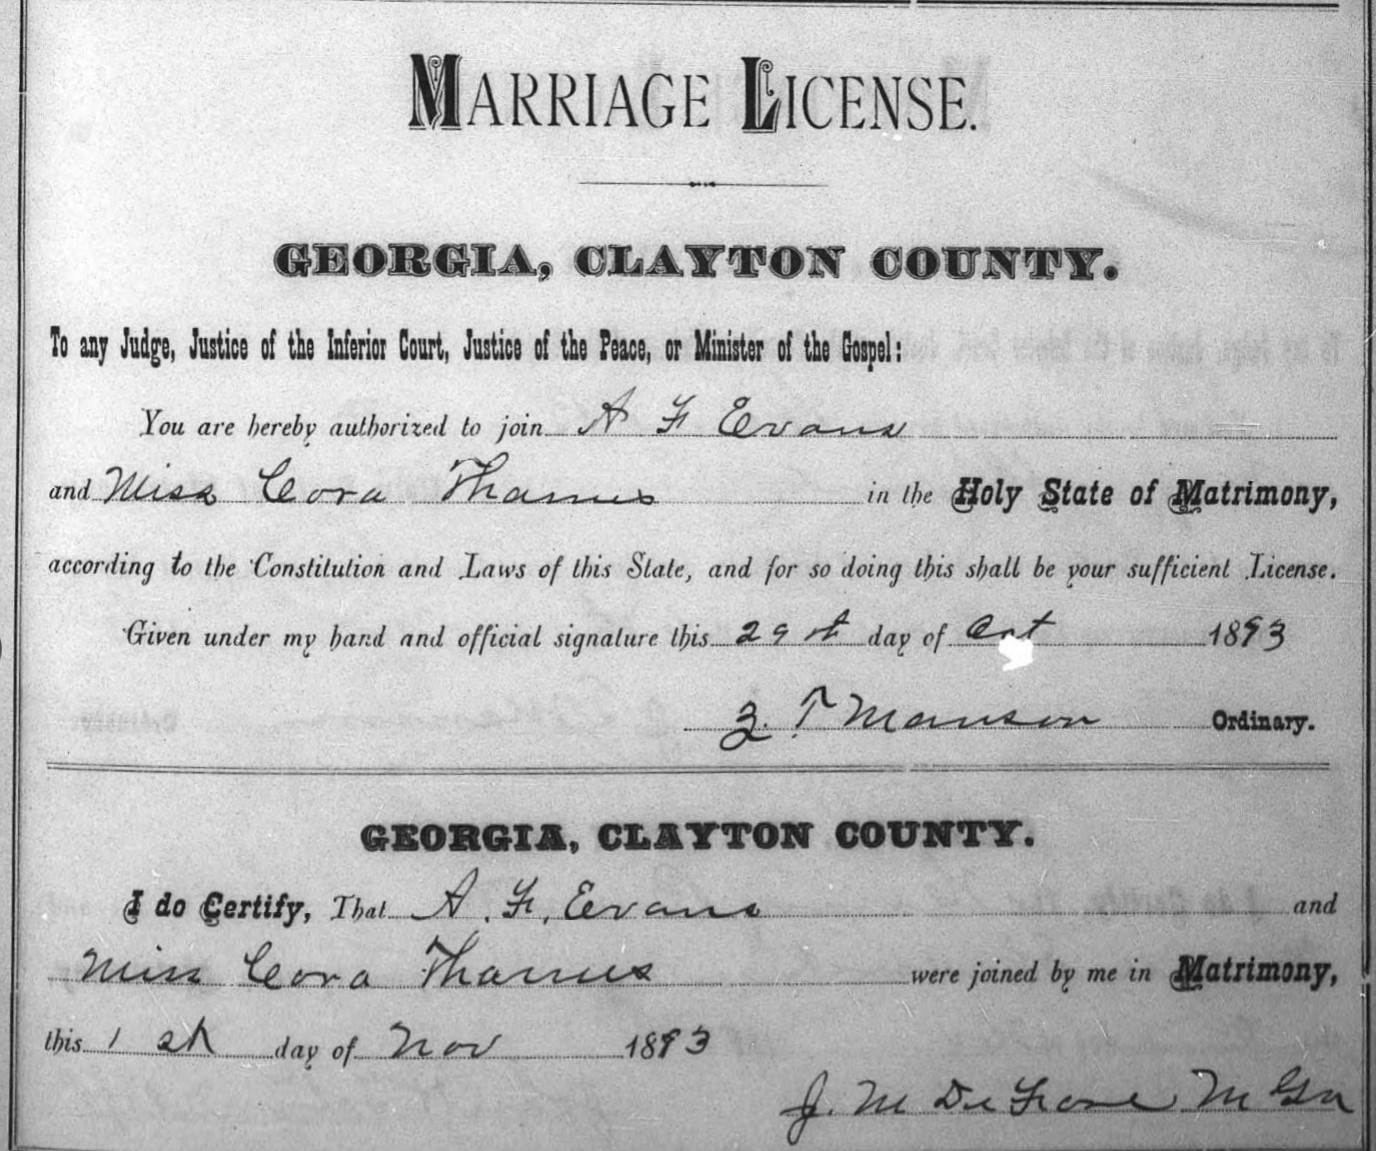 MARRIAGE LICENSE.
GEORGIA, CLAYTON COUNTY.
To any Judge, Justice of the Inferior Court, Justice of the Peace, or Minister of the Gospel:
You are hereby authorized to join A F Evans
and Miss Cora Thames in the Holy State of Matrimony,
according to the Constitution and Laws of this State, and for so doing this shall be your sufficient License.
Given under my hand and official signature this 29th day of Oct 1893
Z. T Manson Ordinary.
GEORGIA, CLAYTON COUNTY.
I do Certify, That A. F. Evans and
Miss Cora Thames were joined by me in Matrimony,
this 1st day of Nov 1893
J. M